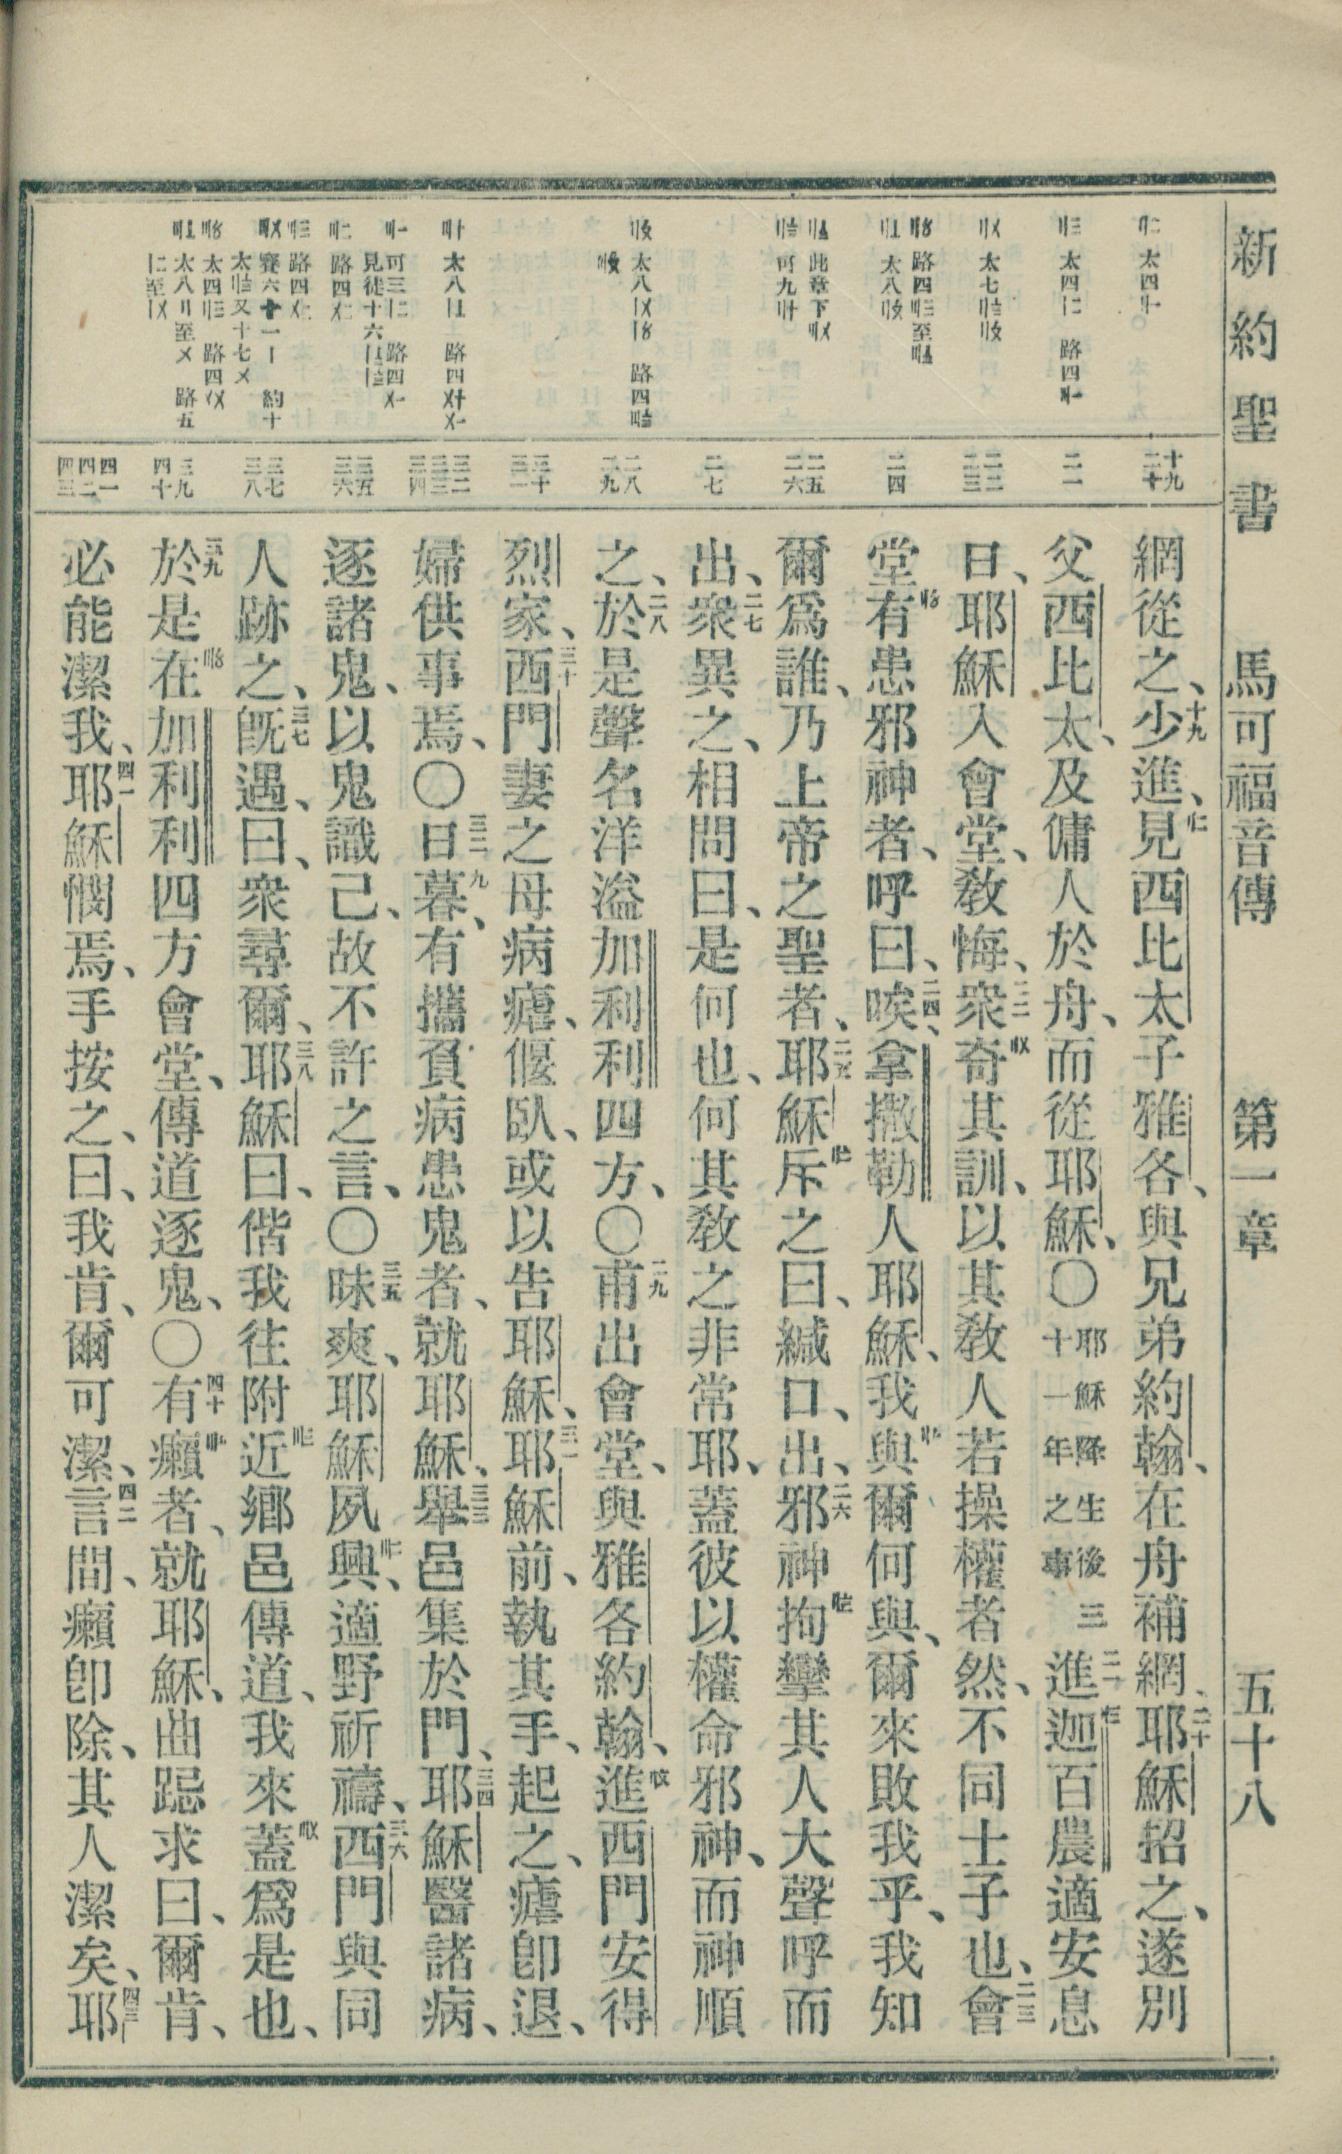 新約聖書 馬可福音傳 第一章 五十八
十九 二十
二一
二二 二三
二四
二五 二六
二七
二八 二九
三十 三一
三二 三三 三四
三五 三六
三七 三八
三九 四十
四一 四二 四三
網從之、十九少進、見西比太子雅各、與兄弟約翰、在舟補網、二十耶穌招之、遂別
父西比太、及傭人於舟、而從耶穌、〇耶穌降生後三十一年之事二一進迦百農適安息
日、耶穌入會堂、敎悔、二二衆奇其訓、以其敎人若操權者然、不同士子也、二三會
堂有患邪神者、呼曰、二四唉、拿撒勒人耶穌、我與爾何與、爾來敗我乎、我知
爾爲誰、乃上帝之聖者、二五耶穌斥之曰、緘口、出、二六邪神拘攣其人大聲呼而
出、二七衆異之、相問曰、是何也、何其敎之非常耶、蓋彼以權命邪神、而神順
之、二八於是聲名洋溢加利利四方、〇二九甫出會堂、與雅各約翰、進西門安得
烈家、三十西門妻之母病瘧、偃臥、或以告耶穌、三一耶穌前、執其手、起之、瘧卽退、
婦供事焉、〇三二日暮、有攜負病患鬼者、就耶穌、三三舉邑集於門、三四耶穌醫諸病、
逐諸鬼、以鬼識己、故不許之言、〇三五昧爽、耶穌夙興、適野祈禱、三六西門與同
人跡之、三七旣遇、曰、衆尋爾、三八耶穌曰、偕我往附近鄕邑傳道、我來蓋爲是也、
三九於是在加利利四方會堂、傳道逐鬼、〇四十有癩者、就耶穌、曲跽求曰、爾肯、
必能潔我、四一耶穌憫焉、手按之、曰、我肯、爾可潔、四二言間、癩卽除、其人潔矣、四三耶